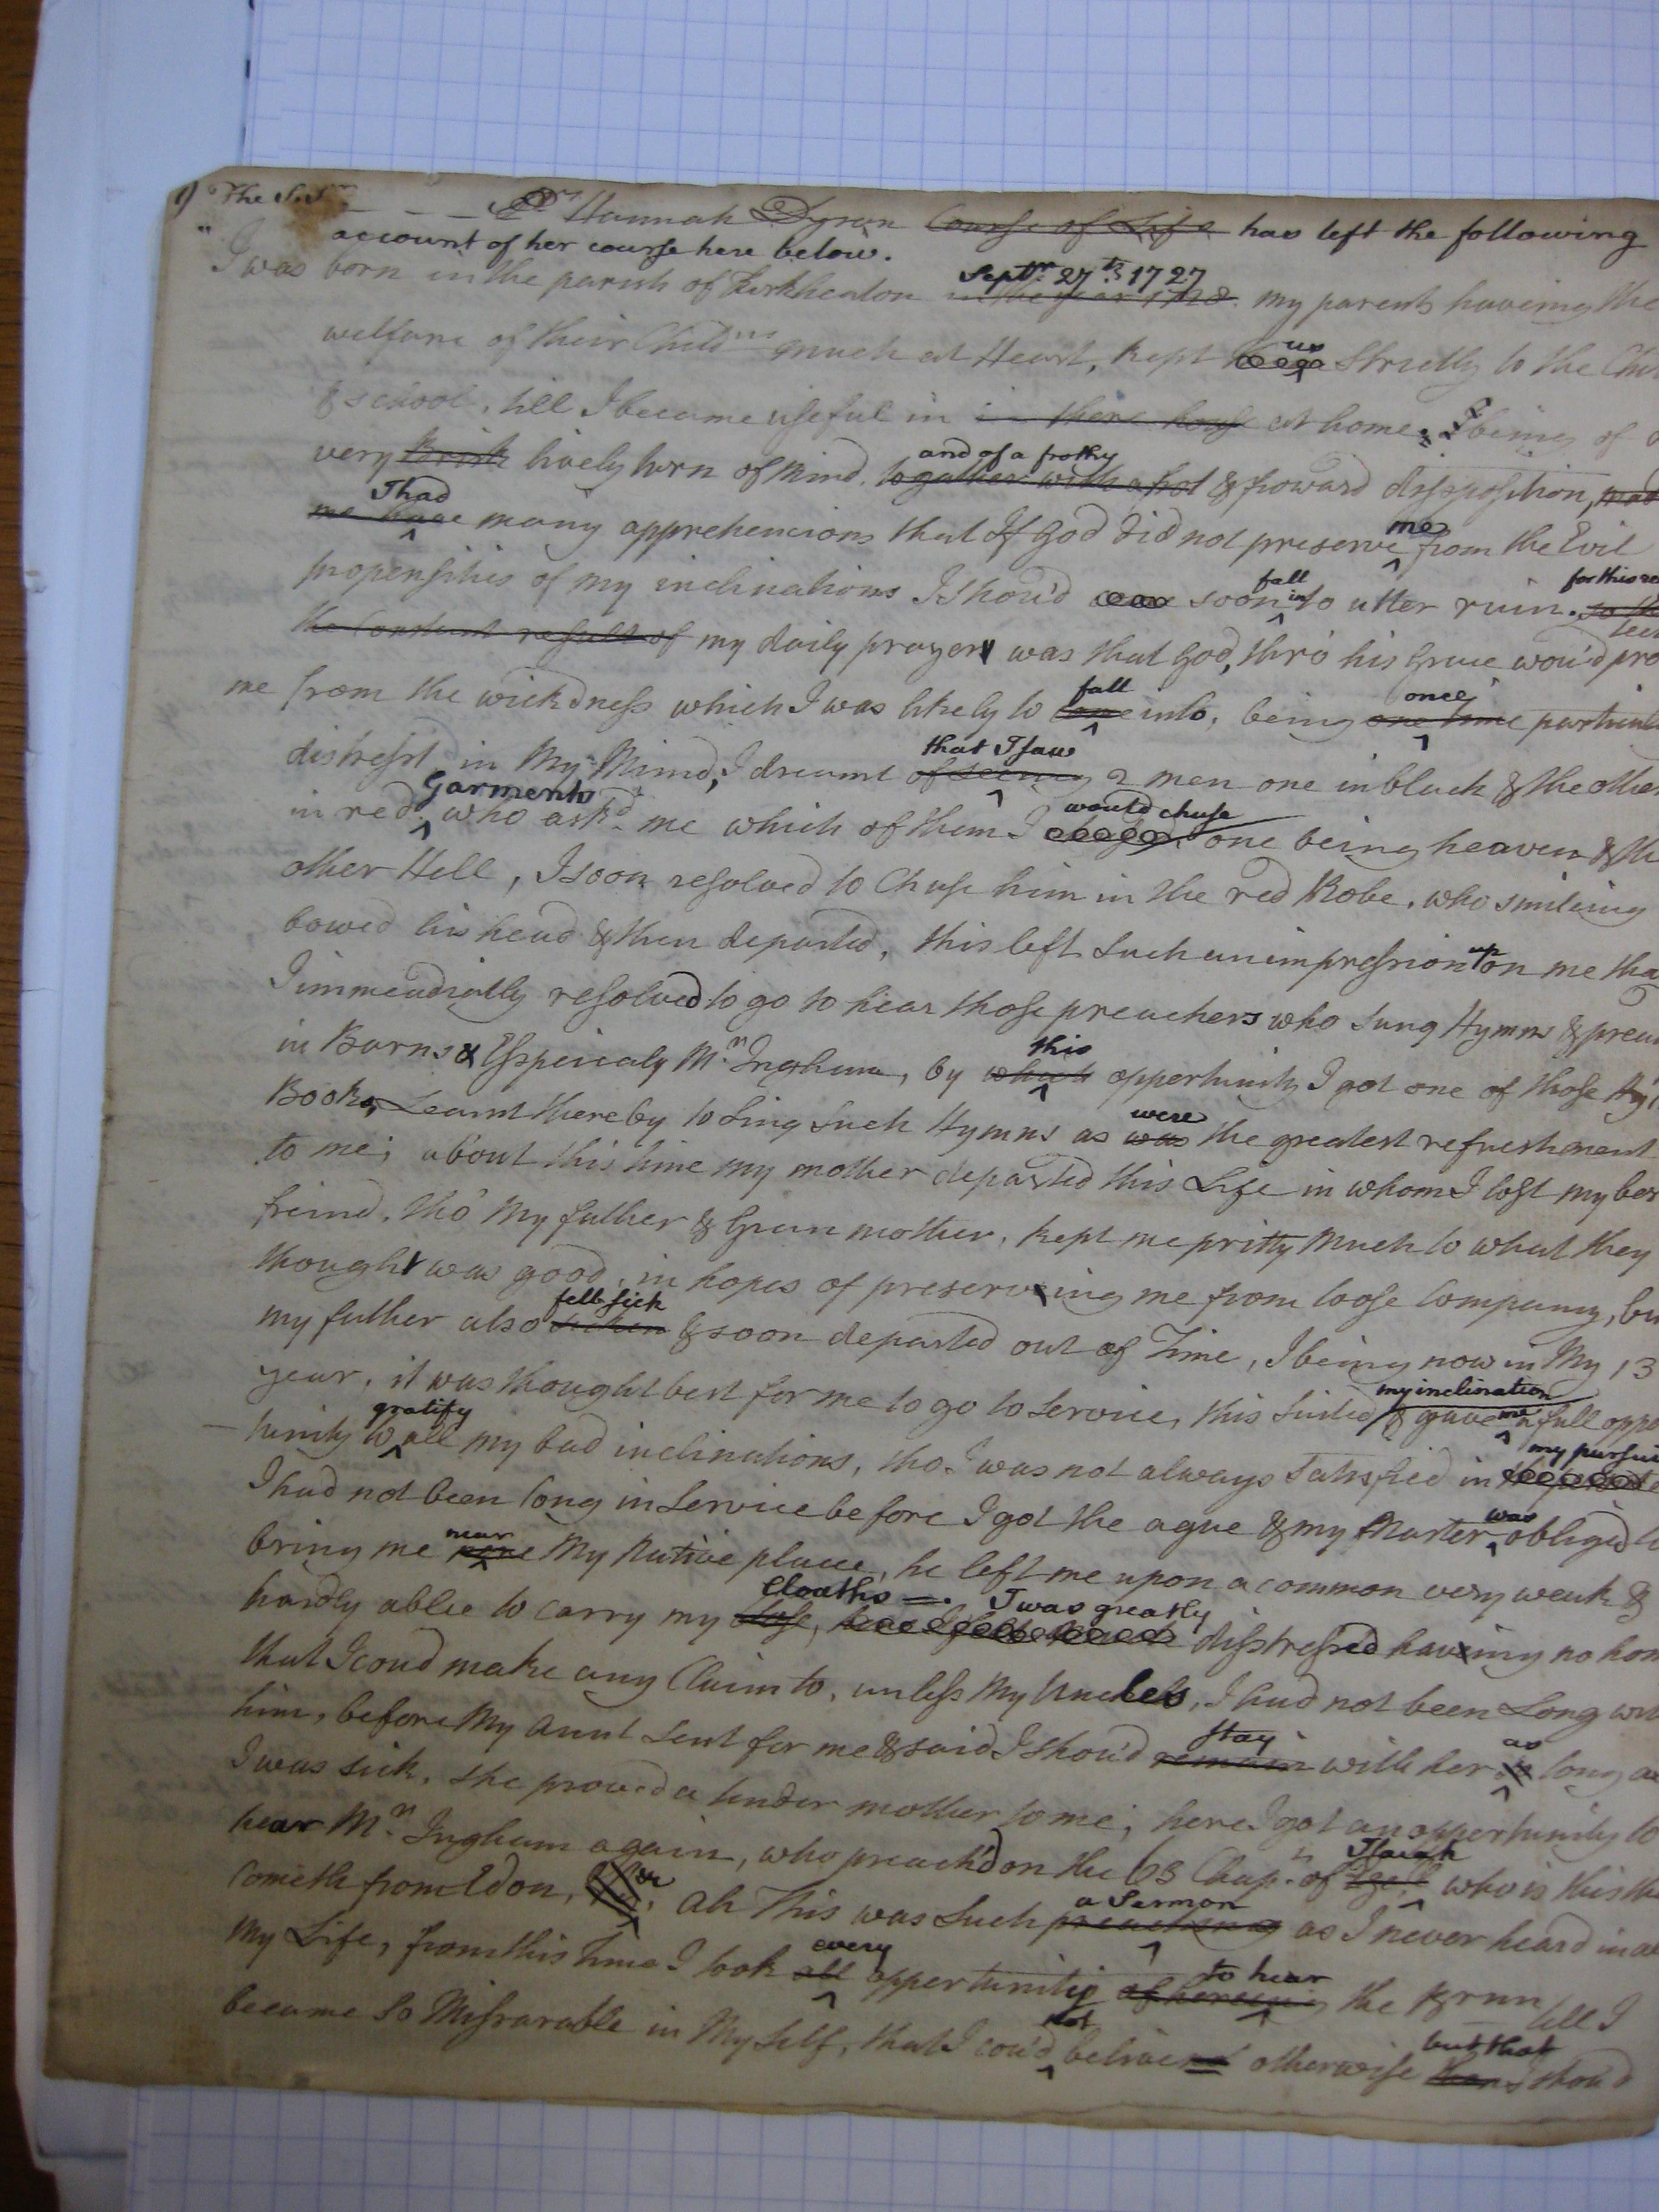 1) The S.Sr. — — — Sr Hannah Dyson Course of Life has left the following
account of her course here below.
"I was born in the parish of Kirkheaton in the year 1728. Septr. 27th 1727 my parents haveing the
welfare of their Childrn much at Heart, kept us Strictly to the Chur
& school, till I became useful in in there house at home. I being of a
very Brisk lively turn of Mind. together with a hot and of a frothy & froward dispposition, mad
me have I had many apprehencions that If God did not preserve me from the Evil
propensitis of my inclinations I Shou'd soon fall into utter ruin. for this rea
the Constant result of my daily prayer was that God, thro' his Grace wou'd pro tect
me from the wickdness which I was likely to fall into, being one time once particul
distresst in My Mind, I dreamt of seeing that I saw 2 men one in black & the other
in red Garments who ask'd me which of them I would chuse one being heaven & the
other Hell, I soon resolved to Chuse him in the red Robe, who smileing
bowed his head & then departed, this left such an impression upon me tha
I immeadiatly resolved to go to hear those preachers who sung Hymns & preac
in Barns & Esspicialy Mr. Ingham, by which this oppertunity I got one of those Hy
Books, Learnt thereby to Sing such Hymns as was were the greatest refreshment
to me; about this time my mother departed this Life in whom I lost my bes
freind, tho' My father & Gran mother, kept me pritty Much to what they
thought was good, in hopes of preserving me from loose Company, bu
my father also sicken fell sick & soon departed out of Time, I being now in My 13
year, it was thought best for me to go to Service, this suited my inclination & gave me a full oppo
tunity to gratify all my bad inclinations, tho. I was not always Satisfied in my pursui
I had not been long in Service before I got the ague & my Master was obliged to
bring me nere near My Native place, he left me upon a common very weak &
hardly able to carry my close, cloaths —. I was greatly disstressed having no hom
that I coud make any Claim to, unless My Uncles, I had not been Long wit
him, before My Aunt Sent for me & said I Shou'd remain stay with her as long as
I was sick, she proved a tender mother to me; here I got an oppertunity to
hear Mr. Ingham again, who preach'd on the 63 Chapr. of Isaiah who is this tha
Cometh from Edom, &c. ah This was such preaching a Sermon as I never heard in al
My Life, from this Time I took all every oppertunity of hereing to hear the Brnn till I
became so Missarable in My Self, that I cou'd not believe otherwise than but that I shou'd